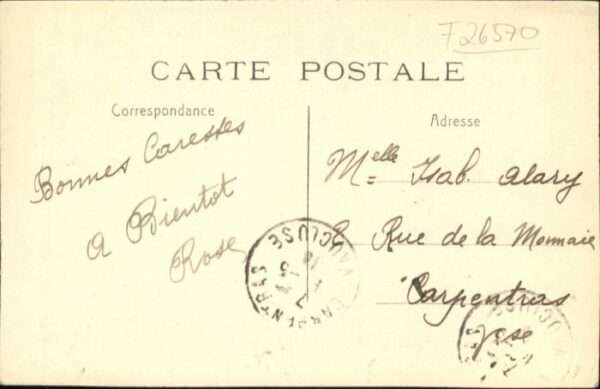 F26570
CARTE POSTALE
Correspondance
Bonnes Caresses
A Bientot
Rose
Adresse
Melle Isab. Alary
Rue de la Monnaie
Carpentras
CARPENTRAS VAUCLUSE